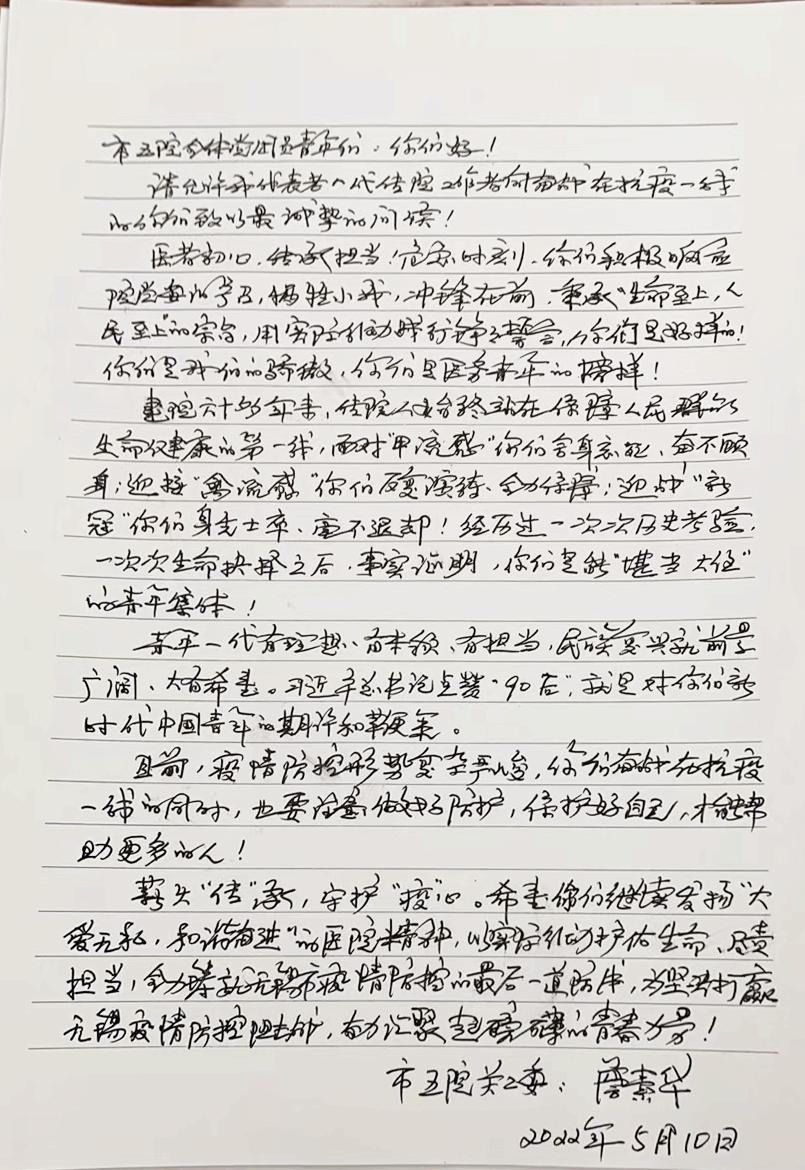 市五院全体党团员青年们：你们好！
请允许我代表老一代传院工作者向奋战在抗疫一线
的你们致以最诚挚的问候！
医者初心，传承担当！危急时刻，你们积极响应
院党委的号召，牺牲小我，冲锋在前，秉承“生命至上，人
民至上”的宗旨，用实际行动践行铮铮誓言，你们是好样的！
你们是我们的骄傲，你们是医务青年的榜样！
建院六十多年来，传院人始终站在保障人民群众
生命健康的第一线，面对“甲流感”你们舍身忘死、奋不顾
身；迎接“禽流感”你们反复演练、全力保障；迎战“新
冠”你们身先士卒、毫不退却！经历过一次次历史考验，
一次次生命抉择之后，事实证明，你们是能“堪当大任”
的青年集体！
青年一代有理想、有本领、有担当，民族复兴就前景
广阔、大有希望。习近平总书记点赞“90后”，就是对你们新
时代中国青年的期许和鞭策。
目前，疫情防控形势复杂严峻，你们奋战在抗疫
一线的同时，也要注意做好防护，保护好自己，才能帮
助更多的人！
薪火“传”承，守护“疫”心。希望你们继续发扬“大
爱无私，和谐奋进”的医院精神，以实际行动护佑生命、尽责
担当，全力铸就无锡市疫情防控的最后一道防线，为坚决打赢
无锡疫情防控阻击战，奋力汇聚起磅礴的青春力量！
市五院关工委：素华
2022年5月10日